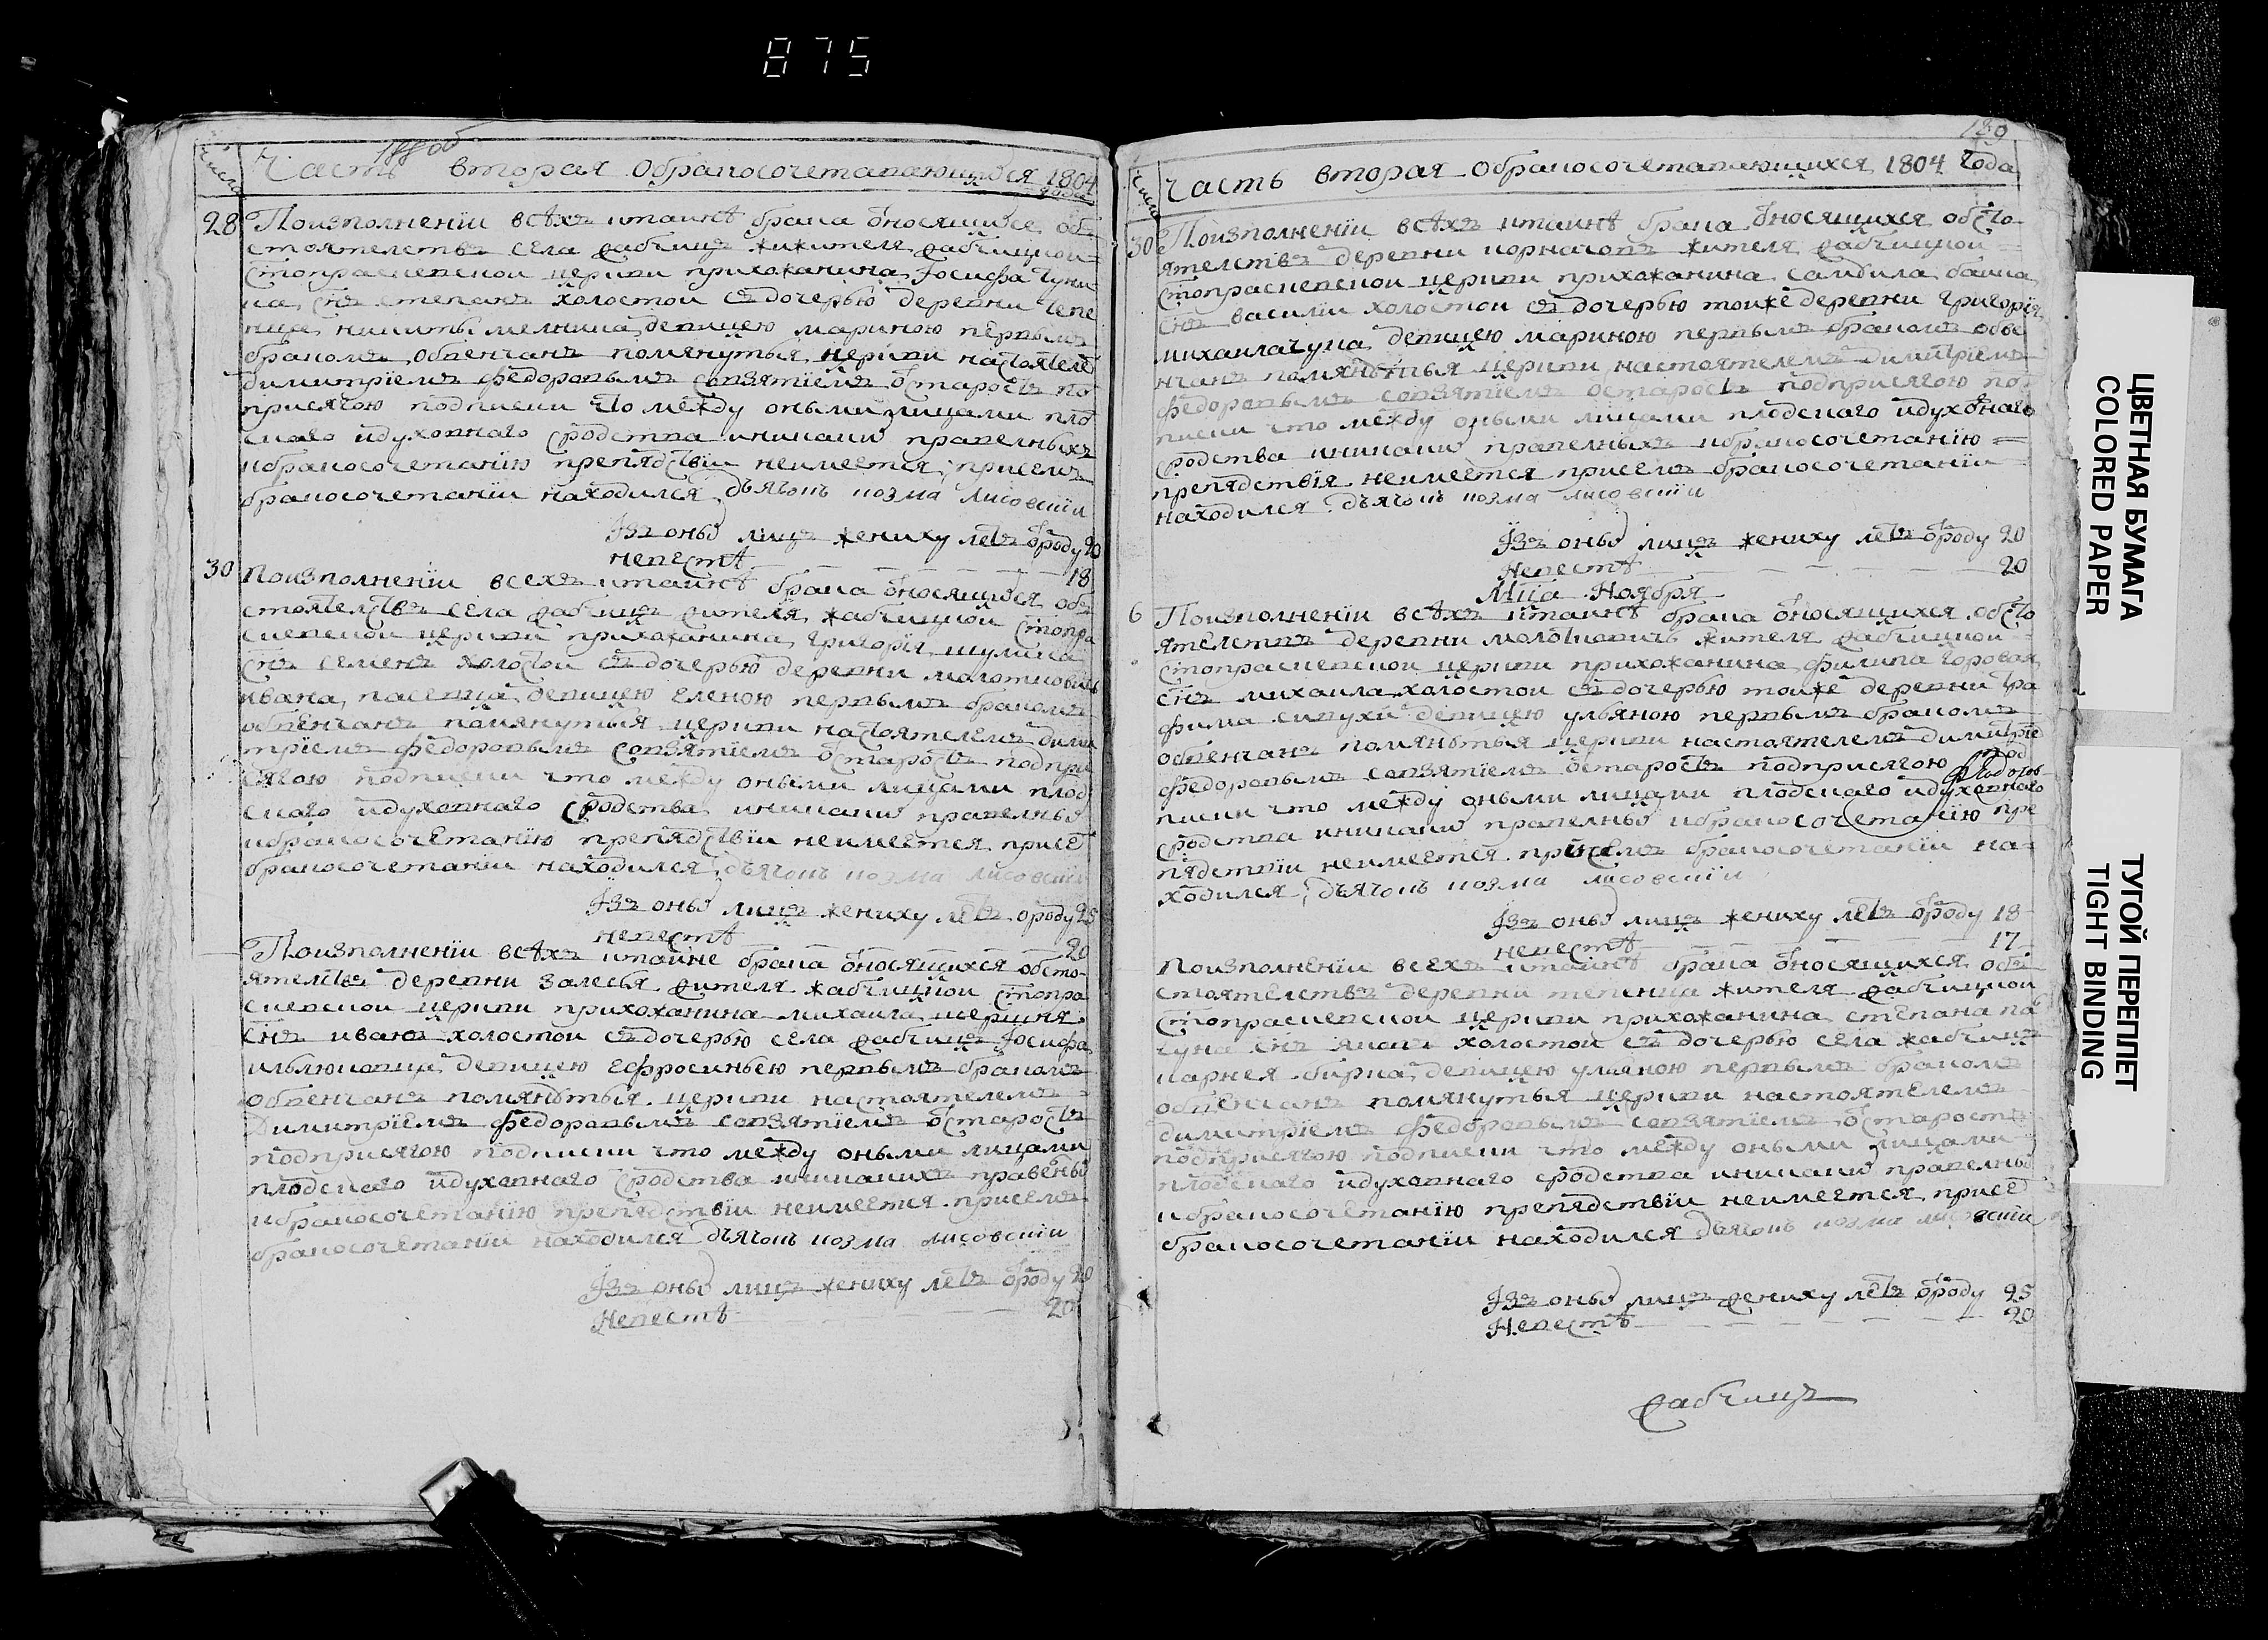 875
188 об
числа
Часть вторая Обракосочетавающихся 1804 года
28 Поизполненїи всѣхъ итаинѣ брака ѿносящихсе об
стоятелствъ села Жабчицъ жижителя Жабчицкои
Стопраскевскои церкви прихожанина Іосифа Чуни
ка, снъ степанъ холостои съ дочерью деревни Чепе
нца, никиты мелника, девицею мариною первымъ
бракомъ обвенчанъ помянутыя церкви настоятеле
димитрїемъ федоровымъ совзятїемъ ѿстаросты по
присягою подписки что между оными лицами пло
скаго идуховнаго сродства иникакиⷯ правелныхъ
ибракосочетанїю препядствїи неимеется, присемъ
бракосочетанїи находился, дьячокъ козма лисовскїи
Изъ оныⷯ лицъ жениху летъ ѿроду 20
невестѣ 18
30 Поизполненїи всехъ итаинѣ брака ѿносящихся об
стоятелствъ села Жабчицъ жителя, жабчицкои стопра
скевскои церкви прихожанина, григорїя шулика
снъ семенъ холостои съ дочерью деревни молотковичь
ивана, пасевица, девицею еленою первымъ бракомъ
обвенчанъ помянутыя церкви настоятелемъ дими
трїемъ федоровымъ совзятїемъ ѿстаростъ подпри
сягою подписки что между оными лицами плод
скаго идуховнаго сродства иникакиⷯ правелныⷯ
ибракосочетанїю препядствїи неимеется присеⷨ
бракосочетанїи находился, дьячокъ козма лисовскїи
Изъ оныⷯ лицъ жениху летъ ѿроду 25
невестѣ 20
Поизполненїи всѣхъ итаине брака ѿносящихся обсто
ятелствъ деревни Залесья жителя жабчицкои стопра
скевскои церкви прихожанина михаила шершня
снъ иванъ холостои съ дочерью села жабчицъ Іосифа
девицею Ефросиньею первымъ бракомъ
обвенчанъ помянутыя церкви настоятелемъ
Димитрїемъ федоровымъ совзятїемъ ѿстаростъ
подприсягою подписки что между оными лицами
плодскаго идуховнаго сродства иникакихъ правелныⷯ
ибракосочетанїю препядствїи неимеется присемъ
бракосочетанїи находился дьячокъ козма лисовскїи
Изъ оныⷯ лицъ жениху летъ ѿроду 20
Невестѣ 20
189
числа
Часть вторая Обракосочетавающихся 1804 года
30 Поизполненїи всѣхъ итаинѣ брака ѿносящихся обсто
ятелствъ деревни жителя жабчицкои
стопраскевскои церкви прихожанина самоила
снъ василїи холостои съ дочерью тоиже деревни григорїя
девицею мариною первымъ бракомъ обве
нчанъ помянутыя церкви настоятелемъ димитрїемъ
федоровымъ совзятїемъ ѿстаростъ подприсягою по
писки что между оными лицами плодскаго идуховнаго
сродства иникакиⷯ правелныхъ ибракосочетанїю
препядствїя неимеется присемъ бракосочетанїи
находился, дьячокъ козма лисовскїи
Изъ оныⷯ лицъ жениху летъ ѿроду 20
Невестѣ 20
Мца Ноября
6 Поизполненїи всѣхъ итаинѣ брака ѿносящихся обсто
ятелствъ деревни молотковичь жителя жабчицкои
стопраскевскои церкви прихожанина филипа горовая
снъ михаила холостои съ дочерью тоиже деревни тра
фима сипухи девицею ульяною первымъ бракомъ
обвенчанъ помянытыя церкви настоятелемъ димитрїе
федоровымъ совзятїемъ ѿстаростъ подприсягою под
писки что между оными лицами плодскаго идуховнаго
сродства иникакиⷯ правелныⷯ ибракосочетанїю пре
пядствїи неимеется присемъ бракосочетанїи на=
ходился, дьячокъ козма лисовскїи
Изъ оныⷯ лицъ жениху летъ ѿроду 18
невестѣ 17
Поизполненїи всехъ итаинѣ брака ѿносящихся об
стоятелствъ деревни жителя жабчицкои
стопраскевскои церкви прихожанина степана па
чуна снъ холостои съ дочерью села жабчицъ
карнея бирка, девицею улияною первымъ бракомъ
обвенчанъ помянутыя церкви настоятелемъ
димитрїемъ федоровымъ совзятїемъ ѿстаростъ
подприсягою подписки что между оными лицами
плодскаго идуховнаго сродства иникакиⷯ правелныⷯ
ибракосочетанїю препядствїи неимеется, присеⷨ
бракосочетанїи находился дьячокъ козма лисовскїи
Изъ оныⷯ лицъ жениху летъ ѿроду 25
Невестѣ 20
Жабчицъ
ЦВЕТНАЯ БУМАГА
COLORED PAPER
ТУГОЙ ПЕРЕПЛЕТ
TIGHT BINDING